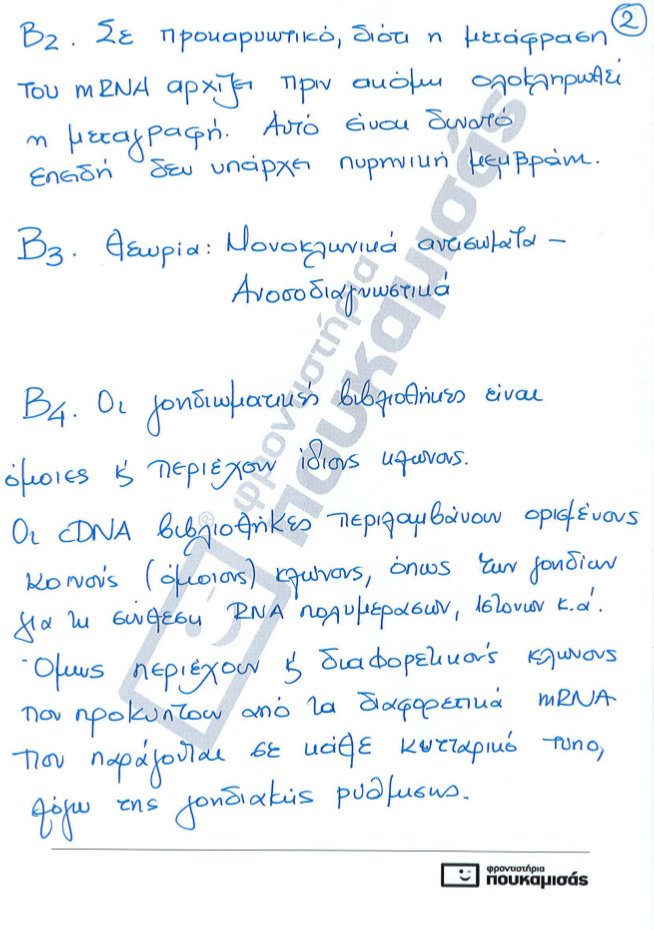 2
Β2. Σε προκαρυωτικό, διότι η μετάφραση
του mRNA αρχίζει πριν ακόμη ολοκληρωθεί
η μεταγραφή. Αυτό είναι δυνατό
επειδή δεν υπάρχει πυρηνική μεμβράνη.
Β3. Θεωρία: Μονοκλωνικά αντισώματα –
Ανοσοδιαγνωστικά
Β4. Οι γονιδιωματικές βιβλιοθήκες είναι
όμοιες ϗ περιέχουν ίδιους κλώνους.
Οι cDNA βιβλιοθήκες περιλαμβάνουν ορισμένους
κοινούς (όμοιους) κλώνους, όπως των γονιδίων
για τη σύνθεση RNA πολυμερασών, ιστονών κ.ά.
Όμως περιέχουν ϗ διαφορετικούς κλώνους
που προκύπτουν από τα διαφορετικά mRNA
που παράγονται σε κάθε κυτταρικό τύπο,
λόγω της γονιδιακής ρύθμισης.
φροντιστήρια πουκαμισάς ®
φροντιστήρια
πουκαμισάς